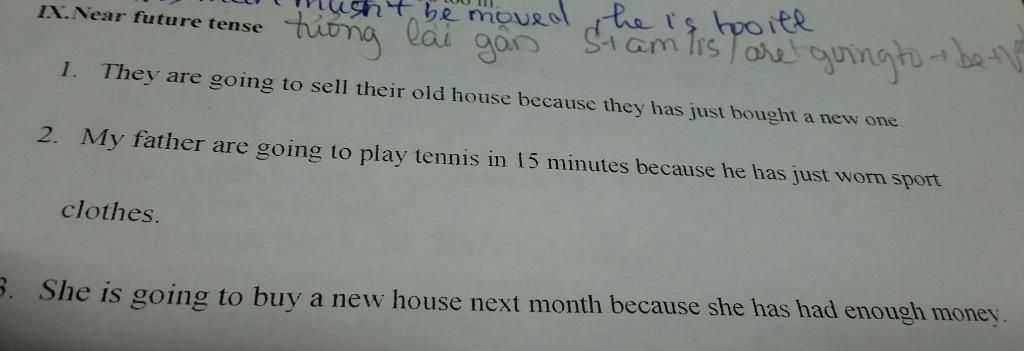 mustn't be moved, she is
IX.Near future tense tương lai gần S+am/is/are+going to + be+V
1. They are going to sell their old house because they has just bought a new one.
2. My father are going to play tennis in 15 minutes because he has just worn sport
clothes.
3. She is going to buy a new house next month because she has had enough money.